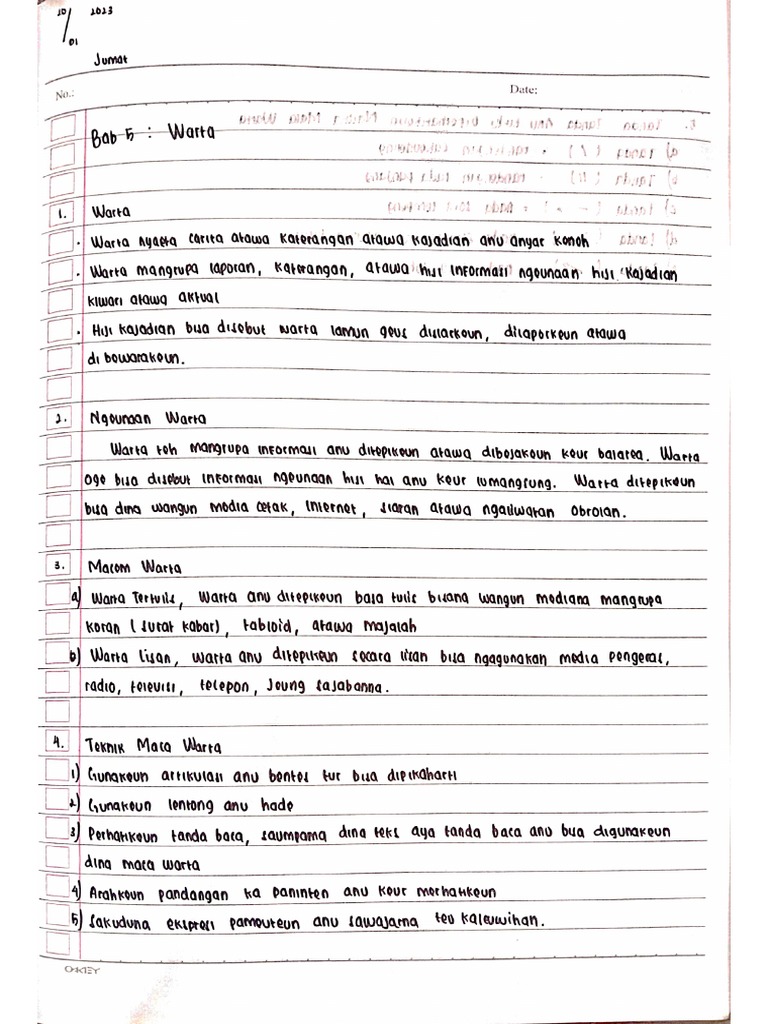 20/01 2023
Jumat
No.:
Date:
Bab 5 : Warta
1. Warta
· Warta nyaeta carita atawa katerangan atawa kajadian anu anyar konoh
· Warta mangrupa laporan, katerangan, atawa hiji informasi ngeunaan hiji kajadian
kiwari atawa aktual
· Hiji kajadian bisa disebut warta lamun geus disiarkeun, dilaporkeun atawa
di bewarakeun.
2. Ngeunaan Warta
Warta teh mangrupa informasi anu ditepikeun atawa dibejakeun keur balarea. Warta
oge bisa disebut informasi ngeunaan hiji hal anu keur lumangsung. Warta ditepikeun
bisa dina wangun media cetak, internet, siaran atawa ngaliwatan obrolan.
3. Macem Warta
a) Warta Tertulis, Warta anu ditepikeun basa tulis bisana wangun mediana mangrupa
koran (surat kabar), tabloid, atawa majalah
b) Warta Lisan, warta anu ditepikeun secara lisan bisa ngagunakan media pengeras,
radio, televisi, telepon, jeung sajabanna.
4. Teknik Maca Warta
1) Gunakeun artikulasi anu bentes tur bisa dipikaharti
2) Gunakeun lentong anu hade
3) Perhatikeun tanda baca, saumpama dina teks aya tanda baca anu bisa digunakeun
dina maca warta
4) Arahkeun pandangan ka paninten anu keur merhatikeun
5) Sakuduna ekspresi pameuteun anu sawajarna teu kaleuwihan.
OKEY